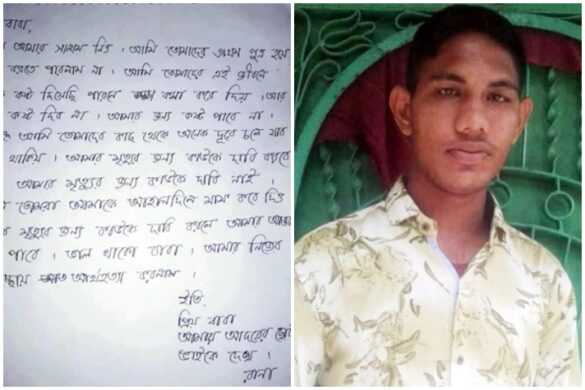 বাবা,
আমার সালাম নিও। আমি তোমাদের প্রথম পুত্র হয়ে
করতে পারলাম না। আমি তোমাদের এই জীবনে
কষ্ট দিয়েছি পারলে ক্ষমা করে দিয়, আর
কষ্ট দিব না। আমার জন্য কষ্ট পাবে না।
আমি তোমাদের কাছ থেকে অনেক দূরে চলে যাব
থাকিয়। আমার মৃত্যুর জন্য কাউকে দায়ি করবে
আমার মৃত্যুর জন্য কাউকে দায়ি নাই।
তোমরা আমাকে মাফ করে দিও
মৃত্যুর জন্য কাউকে দায়ি করলে আমার আত্মা
পাবে। ভাল থাকো বাবা। আমার নিজের
আত্মহত্যা করলাম।
ইতি
প্রিয় বাবা
আমার আদরের ছোট
ভাইকে দেখ।
রানা